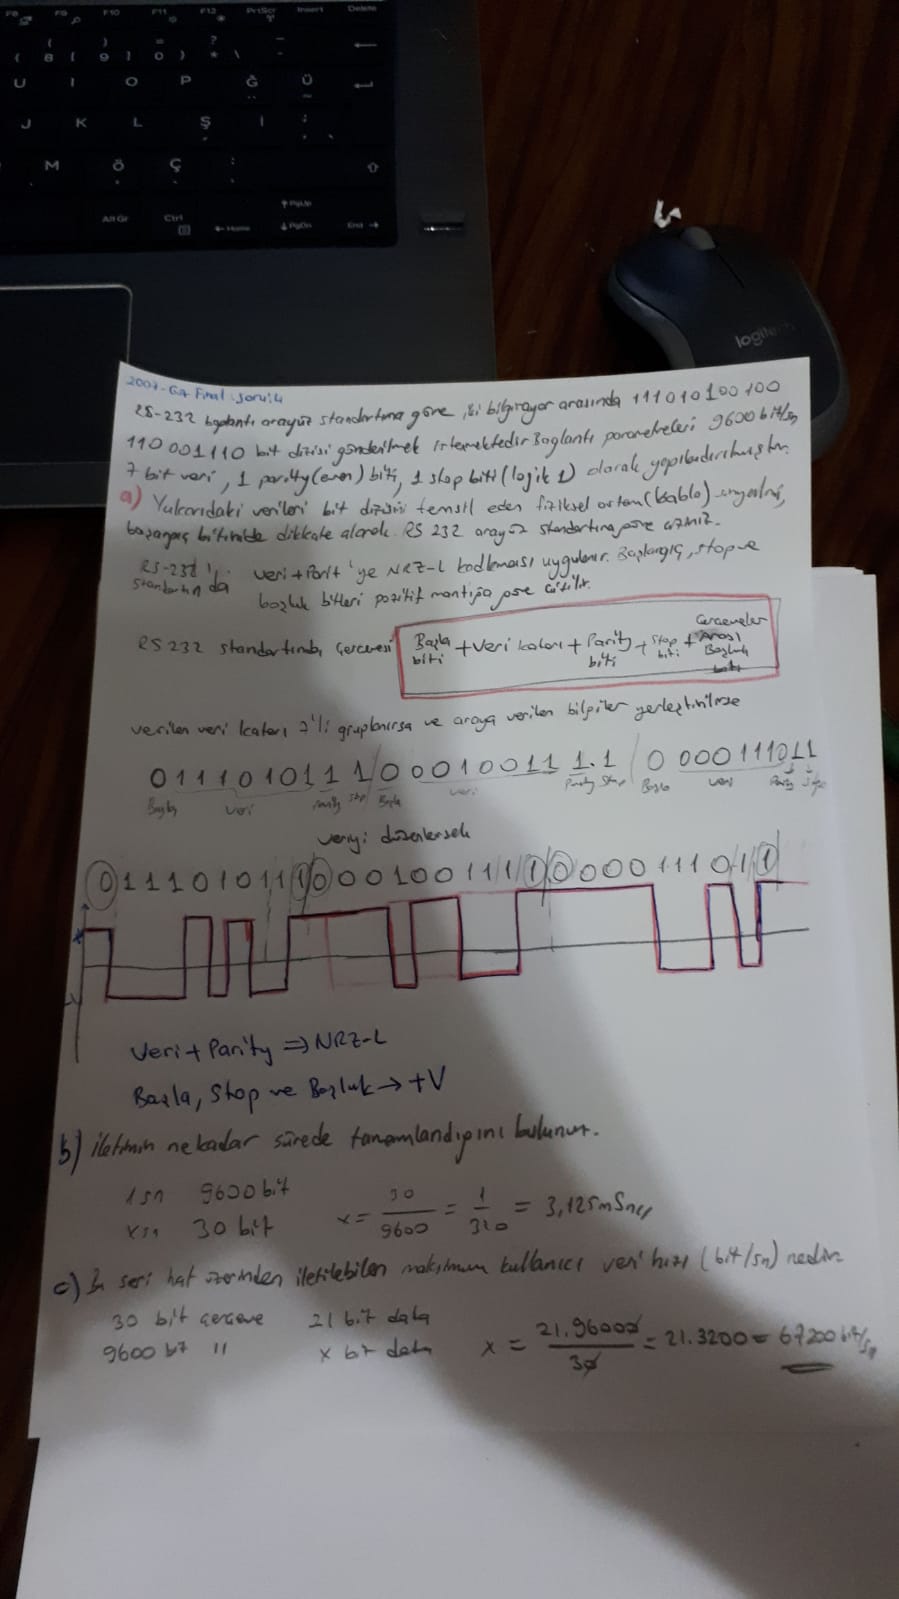 F8 F9 F10 F11 F12 PrtScr Insert Delete
U I O P Ğ Ü
J K L Ş İ
M Ö Ç
Alt Gr Ctrl Home PgUp PgDn End
logitech
2007-GA Final Soru:4
RS-232 bağlantı arayüz standartına göre, iki bilgisayar arasında 111010100100
110001110 bit dizisi gönderilmek istemektedir Bağlantı parametreleri 9600 bit/sn
7 bit veri, 1 parity(even) biti, 1 stop biti (logik 1) olarak yapılandırılmıştır.
a) Yukarıdaki verileri bit dizisini temsil eden fiziksel ortam (kablo)
dikkate alarak RS 232 arayüz standartına göre çiziniz.
RS-232 standartında veri+Parity'ye NRZ-L kodlaması uygulanır. Başlangıç, stop ve
boşluk bitleri pozitif mantığa göre çizilir.
RS 232 standartında çerçevesi Başla biti + Veri katarı + Parity biti + Stop biti + Çerçeveler Arası Boşluk biti
verilen veri katarı 7'li gruplanırsa ve araya verilen bilgiler yerleştirilirse
0111010111 1/0 0010011 1.1/0 000111011
Başla veri Parity Stop Başla veri Parity Stop Başla veri Parity Stop
veriyi düzenlersek
0 1 1 1 0 1 0 1 1 1 0 0 0 1 0 0 1 1 1 1 0 0 0 0 1 1 1 0 1 1
Veri + Parity ⇒ NRZ-L
Başla, Stop ve Boşluk → +V
b) İletimin ne kadar sürede tamamlandığını bulunuz.
1 sn 9600 bit
x sn 30 bit x = 30/9600 = 1/320 = 3,125 mSn
c) Bu seri hat üzerinden iletilebilen maksimum kullanıcı veri hızı (bit/sn) nedir
30 bit çerçeve 21 bit data
9600 bit " x bit data x = 21.9600/30 = 21.3200 = 67200 bit/sn